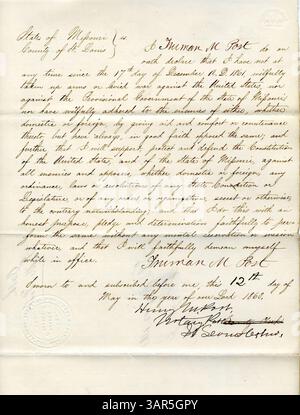 State of Missouri } ss
County of St. Louis }
I Truman M Post do on
oath declare that I have not at
any time since the 17th day of December A.D. 1861, wilfully
taken up arms or levied war against the United States, nor
against the Provisional Government of the State of Missouri,
nor have wilfully adhered to the enemies of either, whether
domestic or foreign, by giving aid and comfort or countenance
thereto but have always, in good faith opposed the same; and
further that I will support, protect and defend the Constitution
of the United States, and of the State of Missouri, against
all enemies and opposers, whether domestic or foreign, any
ordinance, law or resolution of any State Convention or
Legislature, or of any order or organization, secret or otherwise,
to the contrary notwithstanding; and that I do this with an
honest purpose, pledge and determination faithfully to per-
form the same without any mental reservation or evasion
whatever, and that I will faithfully demean myself
while in office.
Truman M Post
Sworn to and subscribed before me, this 12th day of
May in the year of our Lord 186
Henry
Notary
St Louis
alamy
Image ID: 3AR5GPY
www.alamy.com